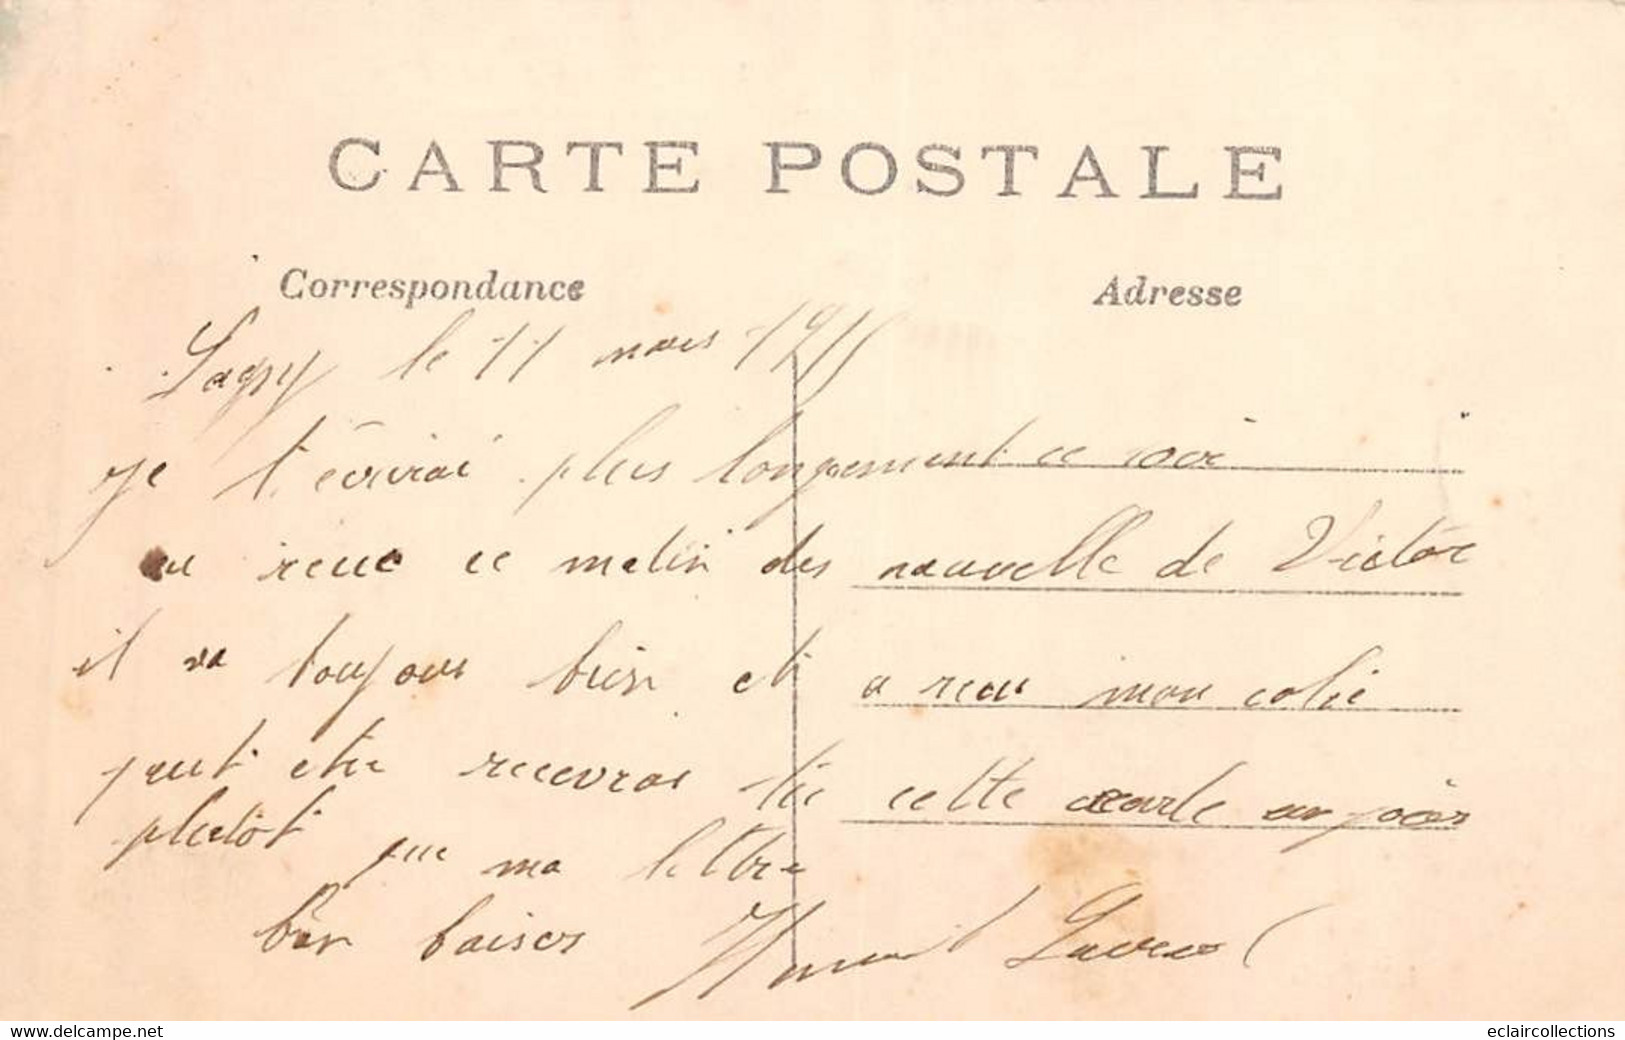 CARTE POSTALE
Correspondance
Adresse
Lagny le 11 mars 1915
je t'écrirai plus longuement ce soir
ai reçue ce matin des nouvelle de Victor
il va toujours bien et a reçu mon colie
peut etre recevrai tu cette carte un jour
plutôt que ma lettre
bon baisers
www.delcampe.net
eclaircollections